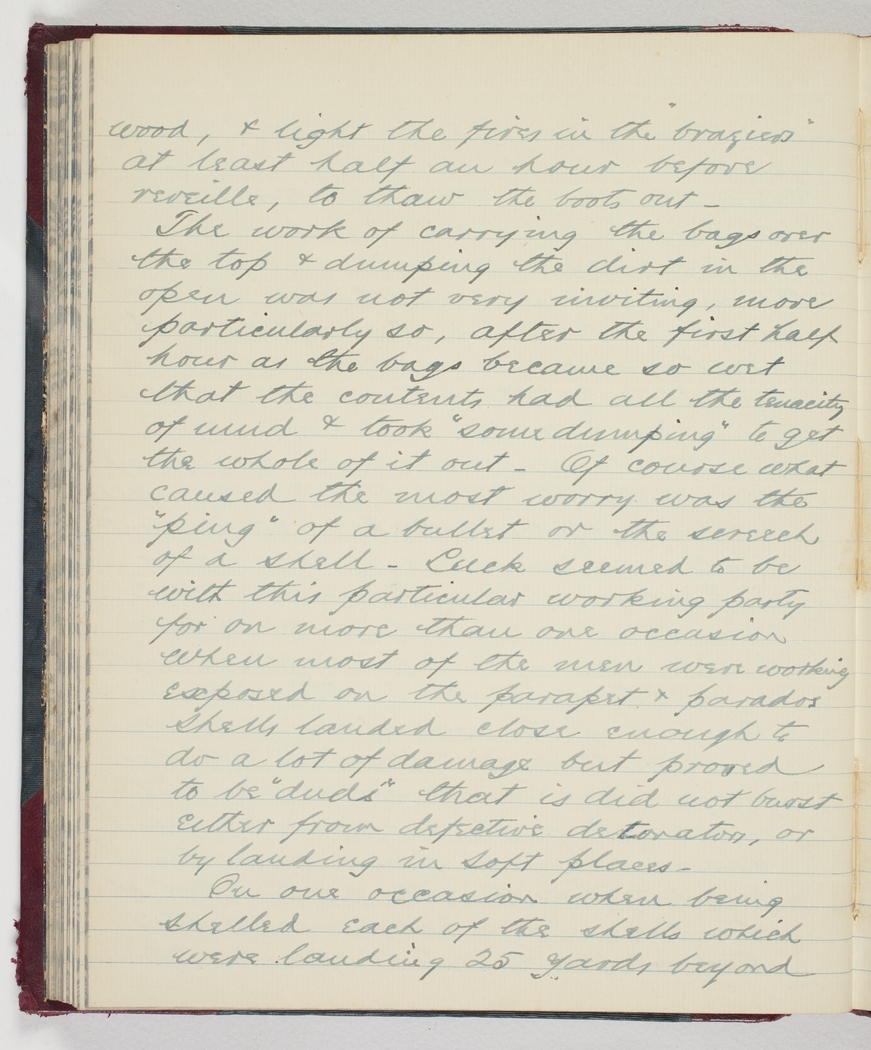 wood, & light the fires in the "braziers"
at least half an hour before
reveille, to thaw the boots out -
The work of carrying the bags over
the top & dumping the dirt in the
open was not very inviting, more
particularly so, after the first half
hour as the bags became so wet
that the contents had all the tenacity
of mud & took "some dumping" to get
the whole of it out - Of course what
caused the most worry was the
"ping" of a bullet or the screech
of a shell - Luck seemed to be
with this particular working party
for on more than one occasion
when most of the men were working
exposed on the parapet & parados
shells landed close enough to
do a lot of damage but proved
to be "duds" that is did not burst
either from defective detonators, or
by landing in soft places -
On one occasion when being
shelled each of the shells which
were landing 25 yards beyond